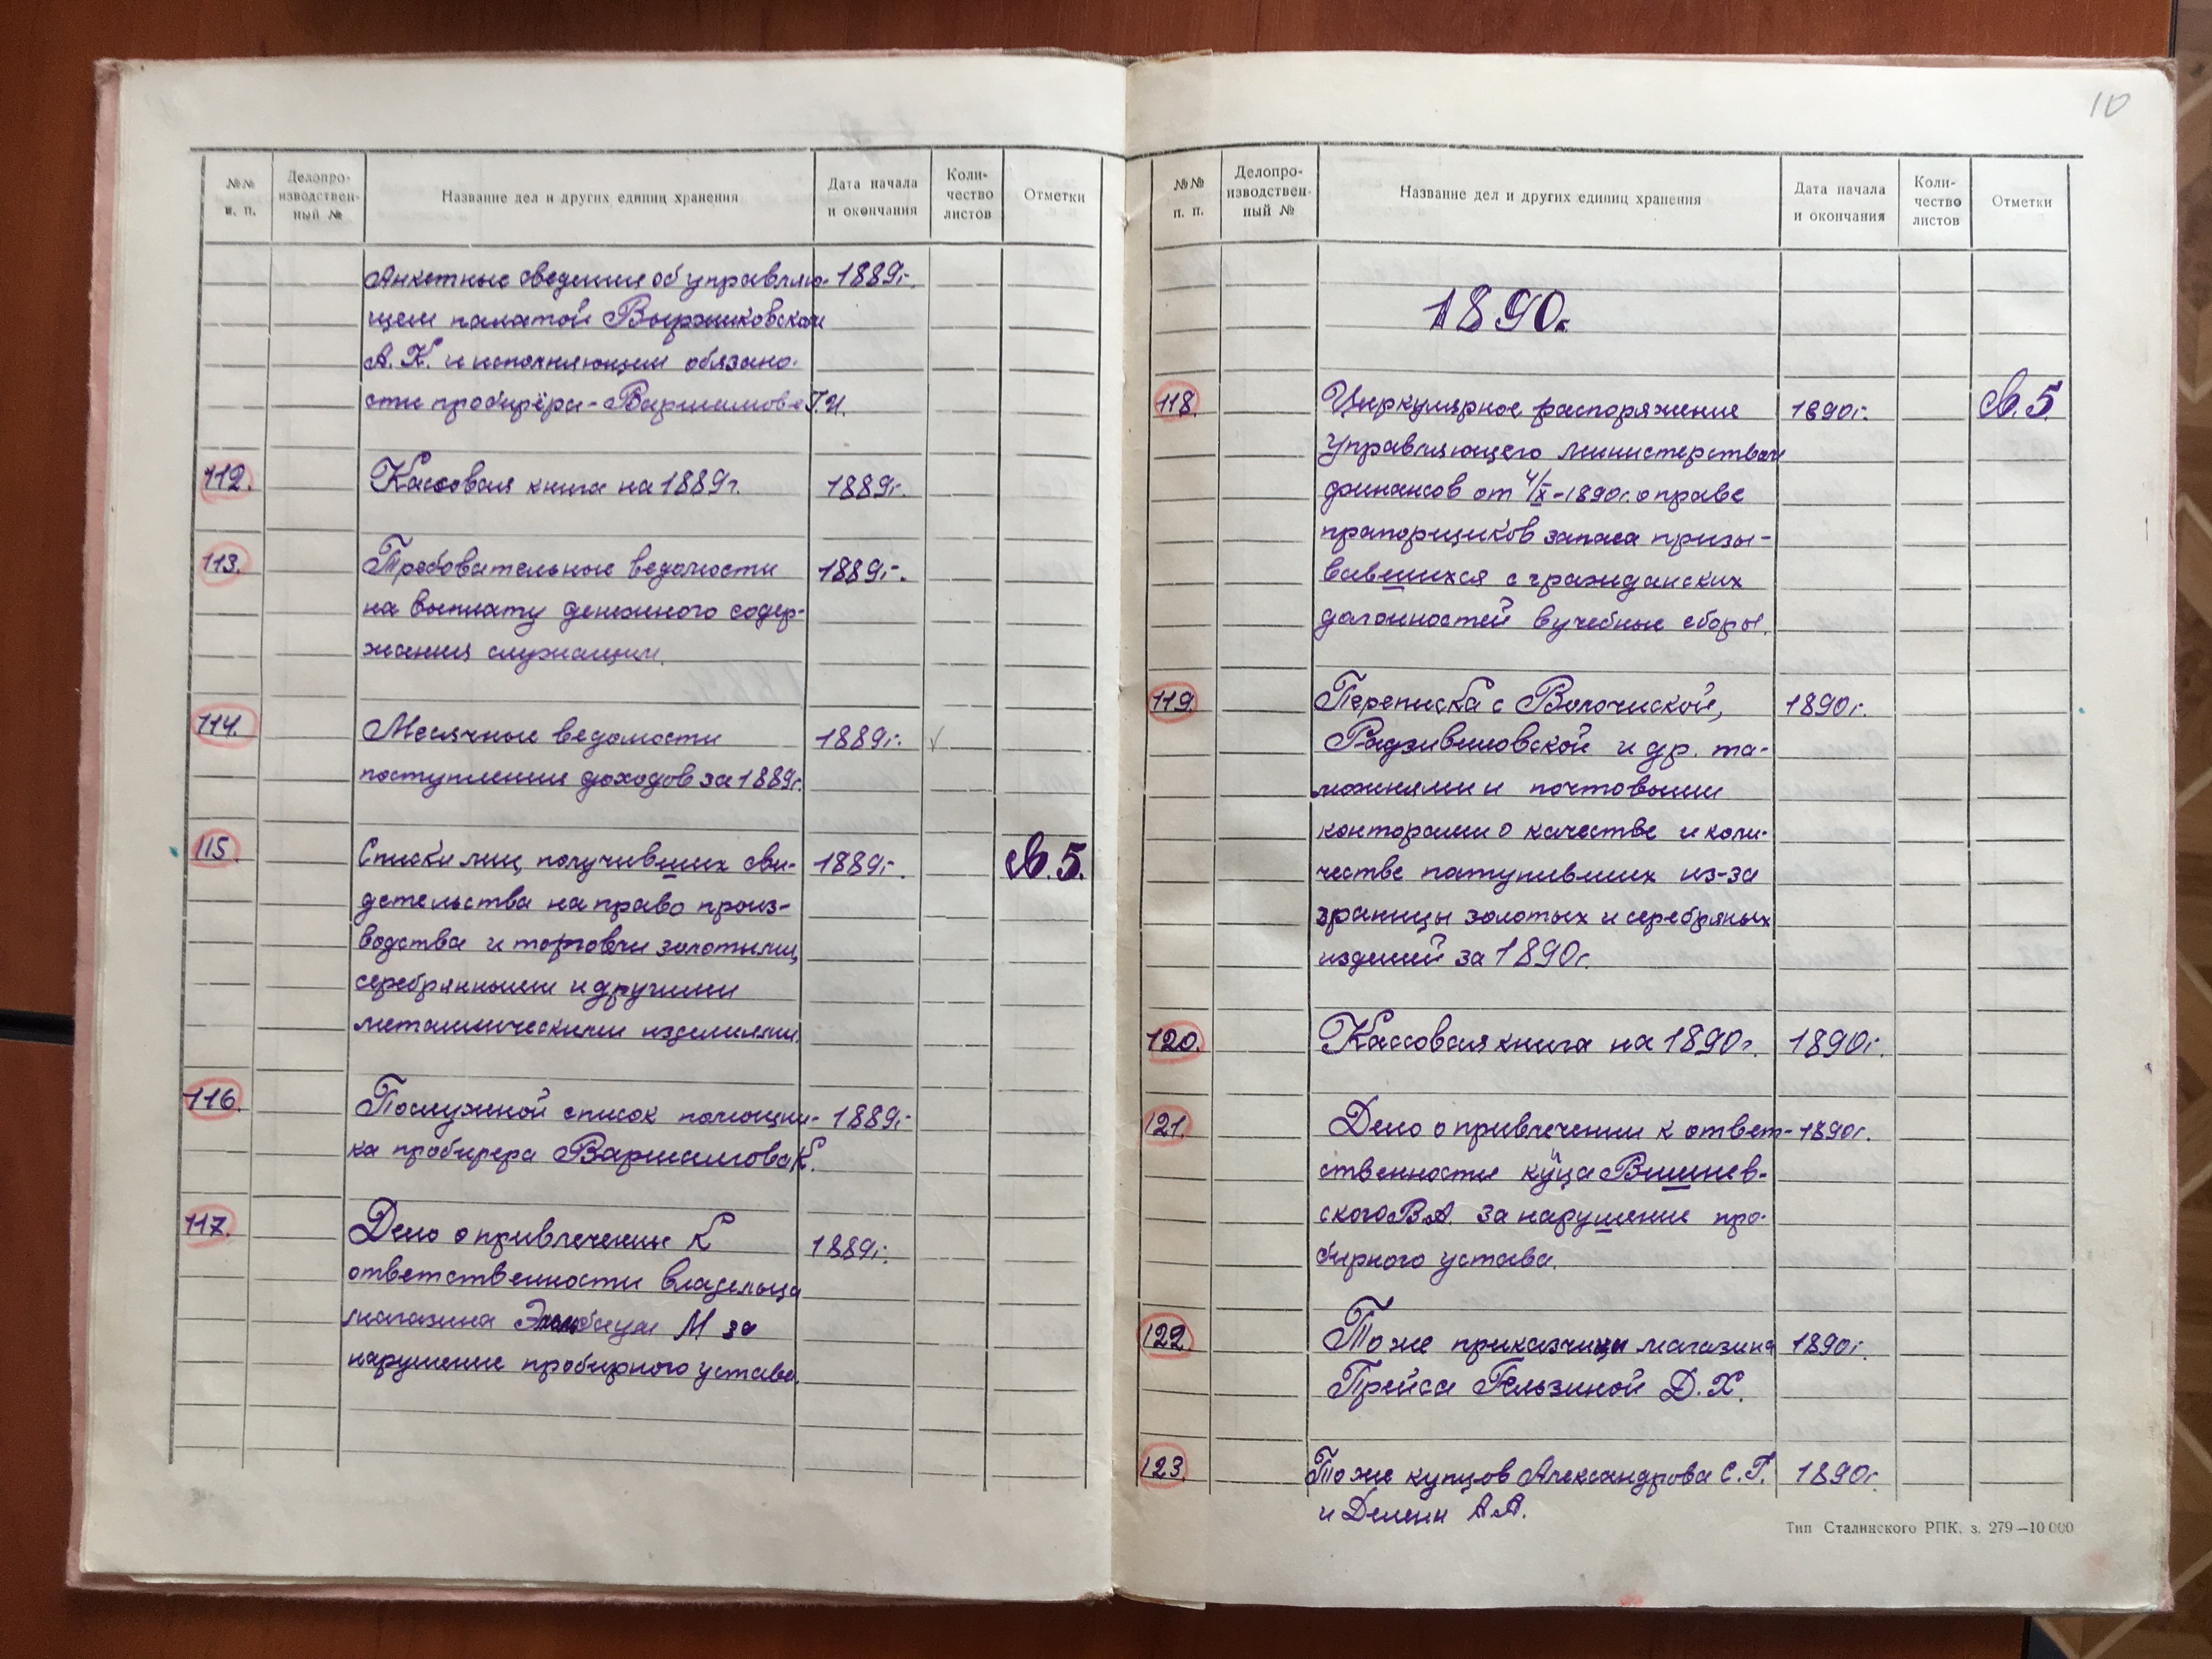 №№ п. п.
Делопроизводственный №
Название дел и других единиц хранения
Дата начала и окончания
Количество листов
Отметки
Анкетные сведения об управляю- 1889г.
щем палатой
А. К. и исполняющим обязано-
сти пробирёра - Варшамове Г.И.
112. Кассовая книга на 1889г. 1889г.
113. Требовательные ведомости 1889г.
на выплату денежного содер-
жания служащим.
114. Месячные ведомости 1889г. ✓
поступления доходов за 1889г.
115. Списки лиц, получивших сви- 1889г. св. 5.
детельства на право произ-
водства и торговли золотыми,
серебрянными и другими
металлическими изделиями.
116. Послужной список помощни- 1889г.
ка пробирера Варшамова К.
117. Дело о привлечении к 1889г.
ответственности владельца
магазина М за
нарушение пробирного устава.
10
№№ п. п.
Делопроизводственный №
Название дел и других единиц хранения
Дата начала и окончания
Количество листов
Отметки
1890г.
118. Циркулярное распоряжение 1890г. св. 5.
Управляющего министерством
финансов от 4/X-1890г. о праве
прапорщиков запаса призы-
вавшихся с гражданских
должностей в учебные сборы.
119. Переписка с Волочиской, 1890г.
Радзивиловской и др. та-
можнями и почтовыми
конторами о качестве и коли-
честве поступивших из-за
границы золотых и серебряных
изделий за 1890г.
120. Кассовая книга на 1890г. 1890г.
121. Дело о привлечении к ответ- 1890г.
ственности Вишнев-
ского В.А. за нарушение про-
бирного устава.
122. То же приказчицы магазина 1890г.
Прейса Гельзиной Д. Х.
123. То же купцов Александрова С. Г. 1890г.
и А.А.
Тип Сталинского РПК. з. 279—10 000